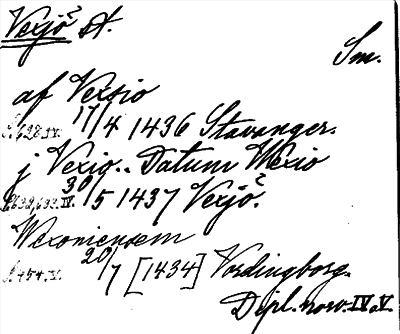 Vexjö st.
Sm.
af Vexsio
S. 628. IV. 17/4 1436 Stavanger.
j Vexio.. Datum Wexio
S. 632, 633. IV. 30/5 1437 Vexjö.
Wexoniensem
S. 454. V. 20/7 [1434] Vordingborg.
Dipl. norv. IV o. V.